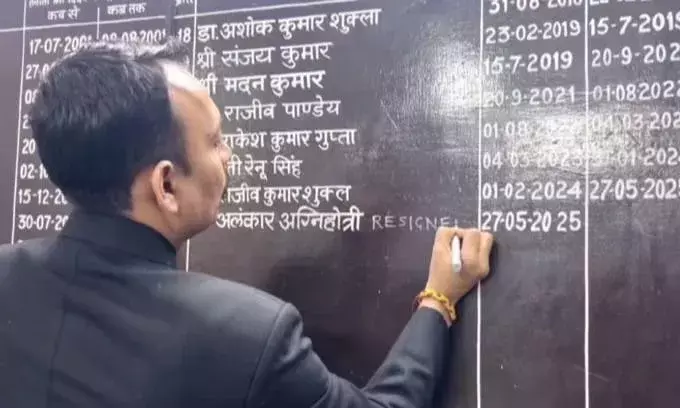 कब से कब तक
17-07-2001 08-08-2001 18 डा. अशोक कुमार शुक्ला 23-02-2019 15-7-2019
श्री संजय कुमार 15-7-2019 20-9-202
श्री मदन कुमार 20-9-2021 01-08-2022
राजीव पाण्डेय 01-08-2022 04-03-202
राकेश कुमार गुप्ता 04-03-2023 -01-2024
रेनू सिंह 01-02-2024 27-05-2025
15-12-20 राजीव कुमार शुक्ल 27-05-2025
30-07- अलंकार अग्निहोत्री RESIGNE